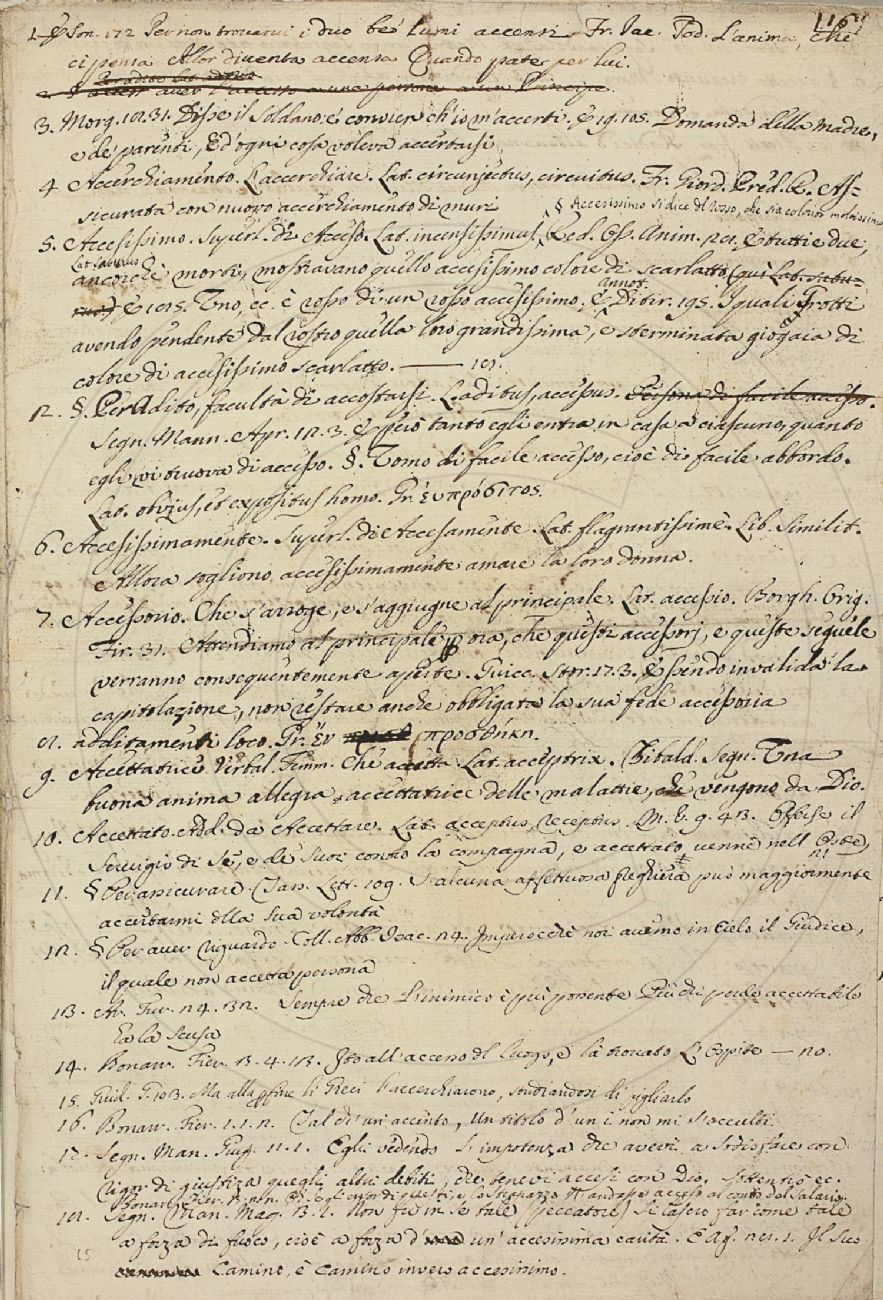 116
1. & Son. 172 Per non trovarvi i duo be' lumi accensi. Fr. Iac. Tod. L'anima, che
ci pensa Allor diventa accensa Quando pate per lui.
Per adito
2. aver l'accesso a una persona Principe.
3. Morg. 18. 31. Disse il Soldano, e' convien ch'io m'accerti. & 19. 105. Domanda della Madre,
e de' parenti, E d'ogni cosa voleva accertarsi.
4 Accerchiamento. L'accerchiare. Lat. circumjectus, circuitus. Fr. Giord. Pred. R. As=
sicurata con nuovo accerchiamento di muri
§ Accesissimo si dice del Rosso, che sia colorito moltissimo
5. Accesissimo. Superl. di Acceso. Lat. incensissimus. Red. Oss. Anim. & tuttie due,
ancorchè morti, mostravano quello accesissimo colore di scarlatto (qui Lat.
& 185. Uno, ec. è rosso di un rosso accesissimo. & annot. Ditir. 195. I quali Grotti
avendo pendente dal rostro quella loro grandissima, e sterminata giogaia di
colore di accesissimo scarlatto. —
12. §. Per Adito, facultà di accostarsi. L. aditus, accessus. Persona di facile accesso.
Segn. Mann. Apr. 12. 3. & però tanto egli entra in casa a ciascuno, quanto
egli vi truova di accesso. §. Uomo di facile accesso, cioè di facile abbordo.
Lat. obvius, et expositus homo. Gr. εὐπρόσιτος.
6. Accesissimamente. Superl. di Accesamente. Lat. flagrantissime. Lib. Similit.
Allora sogliono accesissimamente amare la loro donna.
7. Accessorio. Che s'arroge, e s'aggiugne al principale. Lat. accessio. Borgh. Orig.
Fir. 31. Attendiamo al principale p ora, che questi accessorj, e queste seguele
verranno conseguentemente aperte. Guicc. Stor. 17. 3. Essendo invalida la
capitolazione, non restare anche obbligata la sua fede accessoria
8. additamenti loco. Gr. ἐν προσθήκη.
9. Accettatrice Verbal. Femm. Che accetta Lat. acceptrix. Tribald. Segn. Una
buona anima allegra, accettatrice delle malattie, che vengono da Dio.
10. Accettato. Add. da Accettare. Lat. acceptus, receptus. M. V. 9. 43. Offerse il
servigio di se, e de' suoi contro la compagna, e accettato venne nell' Oste,
11. § Per assicurare. Cas. Lett. 109. Nè alcuna affettuosa preghiera può maggiormente
accertarmi della sua volontà
12. § Per aver riguardo. Coll. Abb. Isac. 24. Imperocchè noi avemo in Cielo il Giudice,
il quale non accetta persona
13. Ar. Fur. 24. 32. Sempre che l'inimico è più possente Più chi perde accettabile
ha la scusa
14. Bonarr. Fier. 3. 4. 13. Ito all'acceno del luogo, e là trovato L'Ospite — no.
15. Guid. G. 103. Ma alla pfine li Greci l'accerchiarono, studiandosi di pigliarlo
16. Bonarr. Fier. 1. 1. 2. Tal ch' un accento, Un titolo d'un i non mi s'occulti
17. Segn. Man. Giug. 11. 1. Egli vedendo l'impotenza che avevi a sodisfare con
rigor di giustizia quegli altri debiti, che tenevi accesi con Dio, sottentrò ec.
18. Segn. Man. Mag. 3. 2. Non fu in se tale (peccatore) si lasciò far come tale
a forza di fuoco, cioè a forza d' un' accesissima carità. E Ag. 28. 1. Il suo
Camino, è camino invero accesissimo.